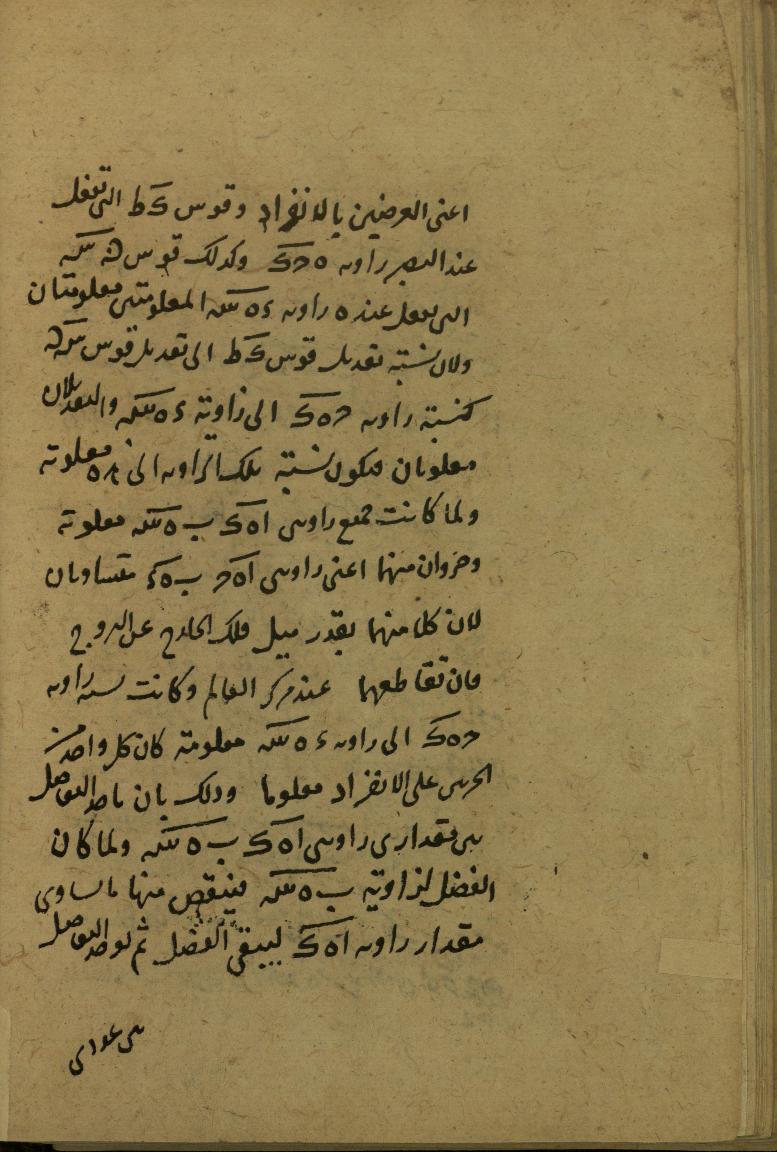 اعنى العرضين بالانفراد وقوس كط التى تفعل
عند البصر زاويه ه ح ك وكذلك قوس
التى تفعل عند ه زاويه ء ه المعلومتين معلومتان
ولان نسبة تعديل قوس كط الى تعديل قوس
كنسبة زاويه ح ه ك الى زاوية ء ه والتعديلان
معلومان فتكون نسبة تلك الزاويه الى معلومة
ولما كانت جميع زاويتى ا ه ك ب ه معلومة
وجزوان منهما اعنى زاويتى ا ه ح ب ه ء متساويان
لان كلا منهما بقدر ميل فلك الخارج عن البروج
فان تقاطعهما عند مركز العالم وكانت نسبة زاويه
ح ه ك الى زاويه ء ه معلومة كان كل واحد من
الجزئين على الانفراد معلوما وذلك بان ناخذ التفاضل
بين مقدارى زاويتى ا ه ك ب ه ولما كان
الفضل لزاوية ب ه فينقص منها ما يساوى
مقدار زاويه ا ه ك ليبقى الفضل ثم يوخذ التفاضل
بين عددى